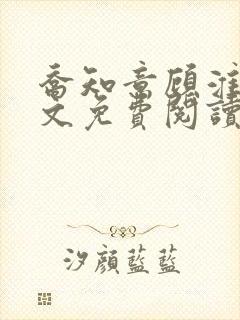 喬知意顧淮
文免費閱讀
汐顏藍藍